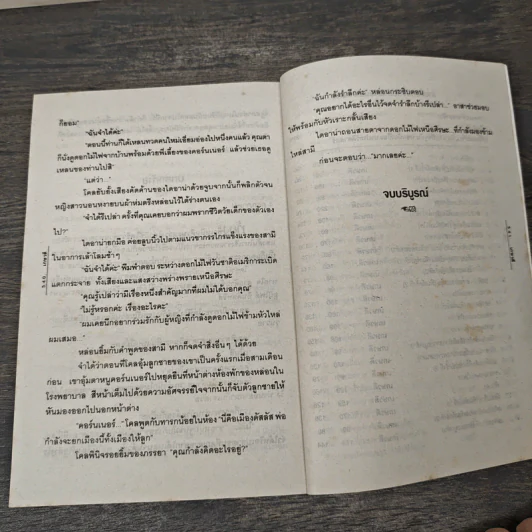 ก็ยอม"
"ฉันจำได้ค่ะ"
"ตอนนี้ท่านก็ได้เหลนทวดคนใหม่เอี่ยมอ่องไปหนึ่งคนแล้ว คุณตา
ก็นั่งดูดอกไม้ไฟจากบ้านพร้อมด้วยพี่เลี้ยงของคอร์นเนอร์ แล้วช่วยเธอดู
เหลนของท่านไปสิ"
"แต่ว่า..."
โคลยับยั้งเสียงคัดค้านของไดอาน่าด้วยจูบจากนั้นก็พลิกตัวจน
หญิงสาวนอนหงายบนผ้าห่มตรึงหล่อนไว้ใต้ร่างตนเอง
"จำได้รึเปล่า ครั้งที่คุณเคยบอกว่าผมพรากชีวิตวัยเด็กของตัวเอง
ไป?"
ไดอาน่ายกมือ ค่อยลูบนิ้วไปตามแนวขากรรไกรแข็งแรงของสามี
ในอาการเล้าโลมช้าๆ
"ฉันจำได้ค่ะ" พึมพำตอบ ระหว่างดอกไม้ไฟวันชาติอเมริการะเบิด
แตกกระจาย ทั้งเสียงและแสงสว่างพร่างพรายเหนือศีรษะ
"คุณรู้เปล่าว่ามีเรื่องหนึ่งสำคัญมากที่ผมไม่ได้บอกคุณ"
"ไม่รู้หรอกค่ะ เรื่องอะไรคะ"
"ผมเคยนึกอยากร่วมรักกับผู้หญิงที่กำลังดูดอกไม้ไฟข้ามหัวไหล่
ผมเสมอ..."
หล่อนยิ้มกับคำพูดของสามี หากก็จดจำสิ่งอื่นๆ ได้ด้วย
จำได้ว่าตอนที่โคลอุ้มลูกชายของเขาเป็นครั้งแรกเมื่อสามเดือน
ก่อน เขาอุ้มตาหนูคอร์นเนอร์ไปหยุดยืนที่หน้าต่างห้องพักของหล่อนใน
โรงพยาบาล สีหน้าเต็มไปด้วยความอัศจรรย์ใจจากนั้นก็จับตัวลูกชายให้
หันมองออกไปนอกหน้าต่าง
"คอร์นเนอร์..." โคลพูดกับทารกน้อยในห้อง "นี่คือเมืองดัลลัส พ่อ
กำลังจะยกเมืองนี้ทั้งเมืองให้ลูก"
โคลพินิจรอยยิ้มของภรรยา "คุณกำลังคิดอะไรอยู่?"
"ฉันกำลังรำลึกค่ะ" หล่อนกระซิบตอบ
"คุณอยากได้อะไรอื่นไว้จดจำรำลึกบ้างรึเปล่า..." อาสาช่วยมอบ
ให้พร้อมกับหัวเราะกลั้นเสียง
ไดอาน่าถอนสายตาจากดอกไม้ไฟเหนือศีรษะ ที่กำลังมองข้าม
ไหล่สามี
ก่อนจะตอบว่า.. "มากเลยค่ะ.."
จบบริบูรณ์